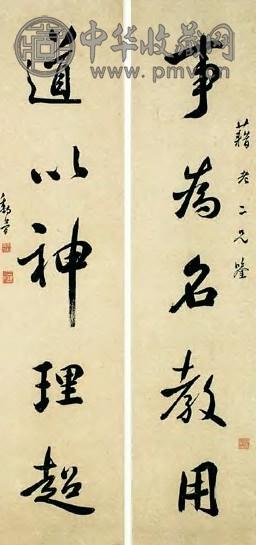 中华收藏网
事為名教用
藉老二兄鑒
道以神理超